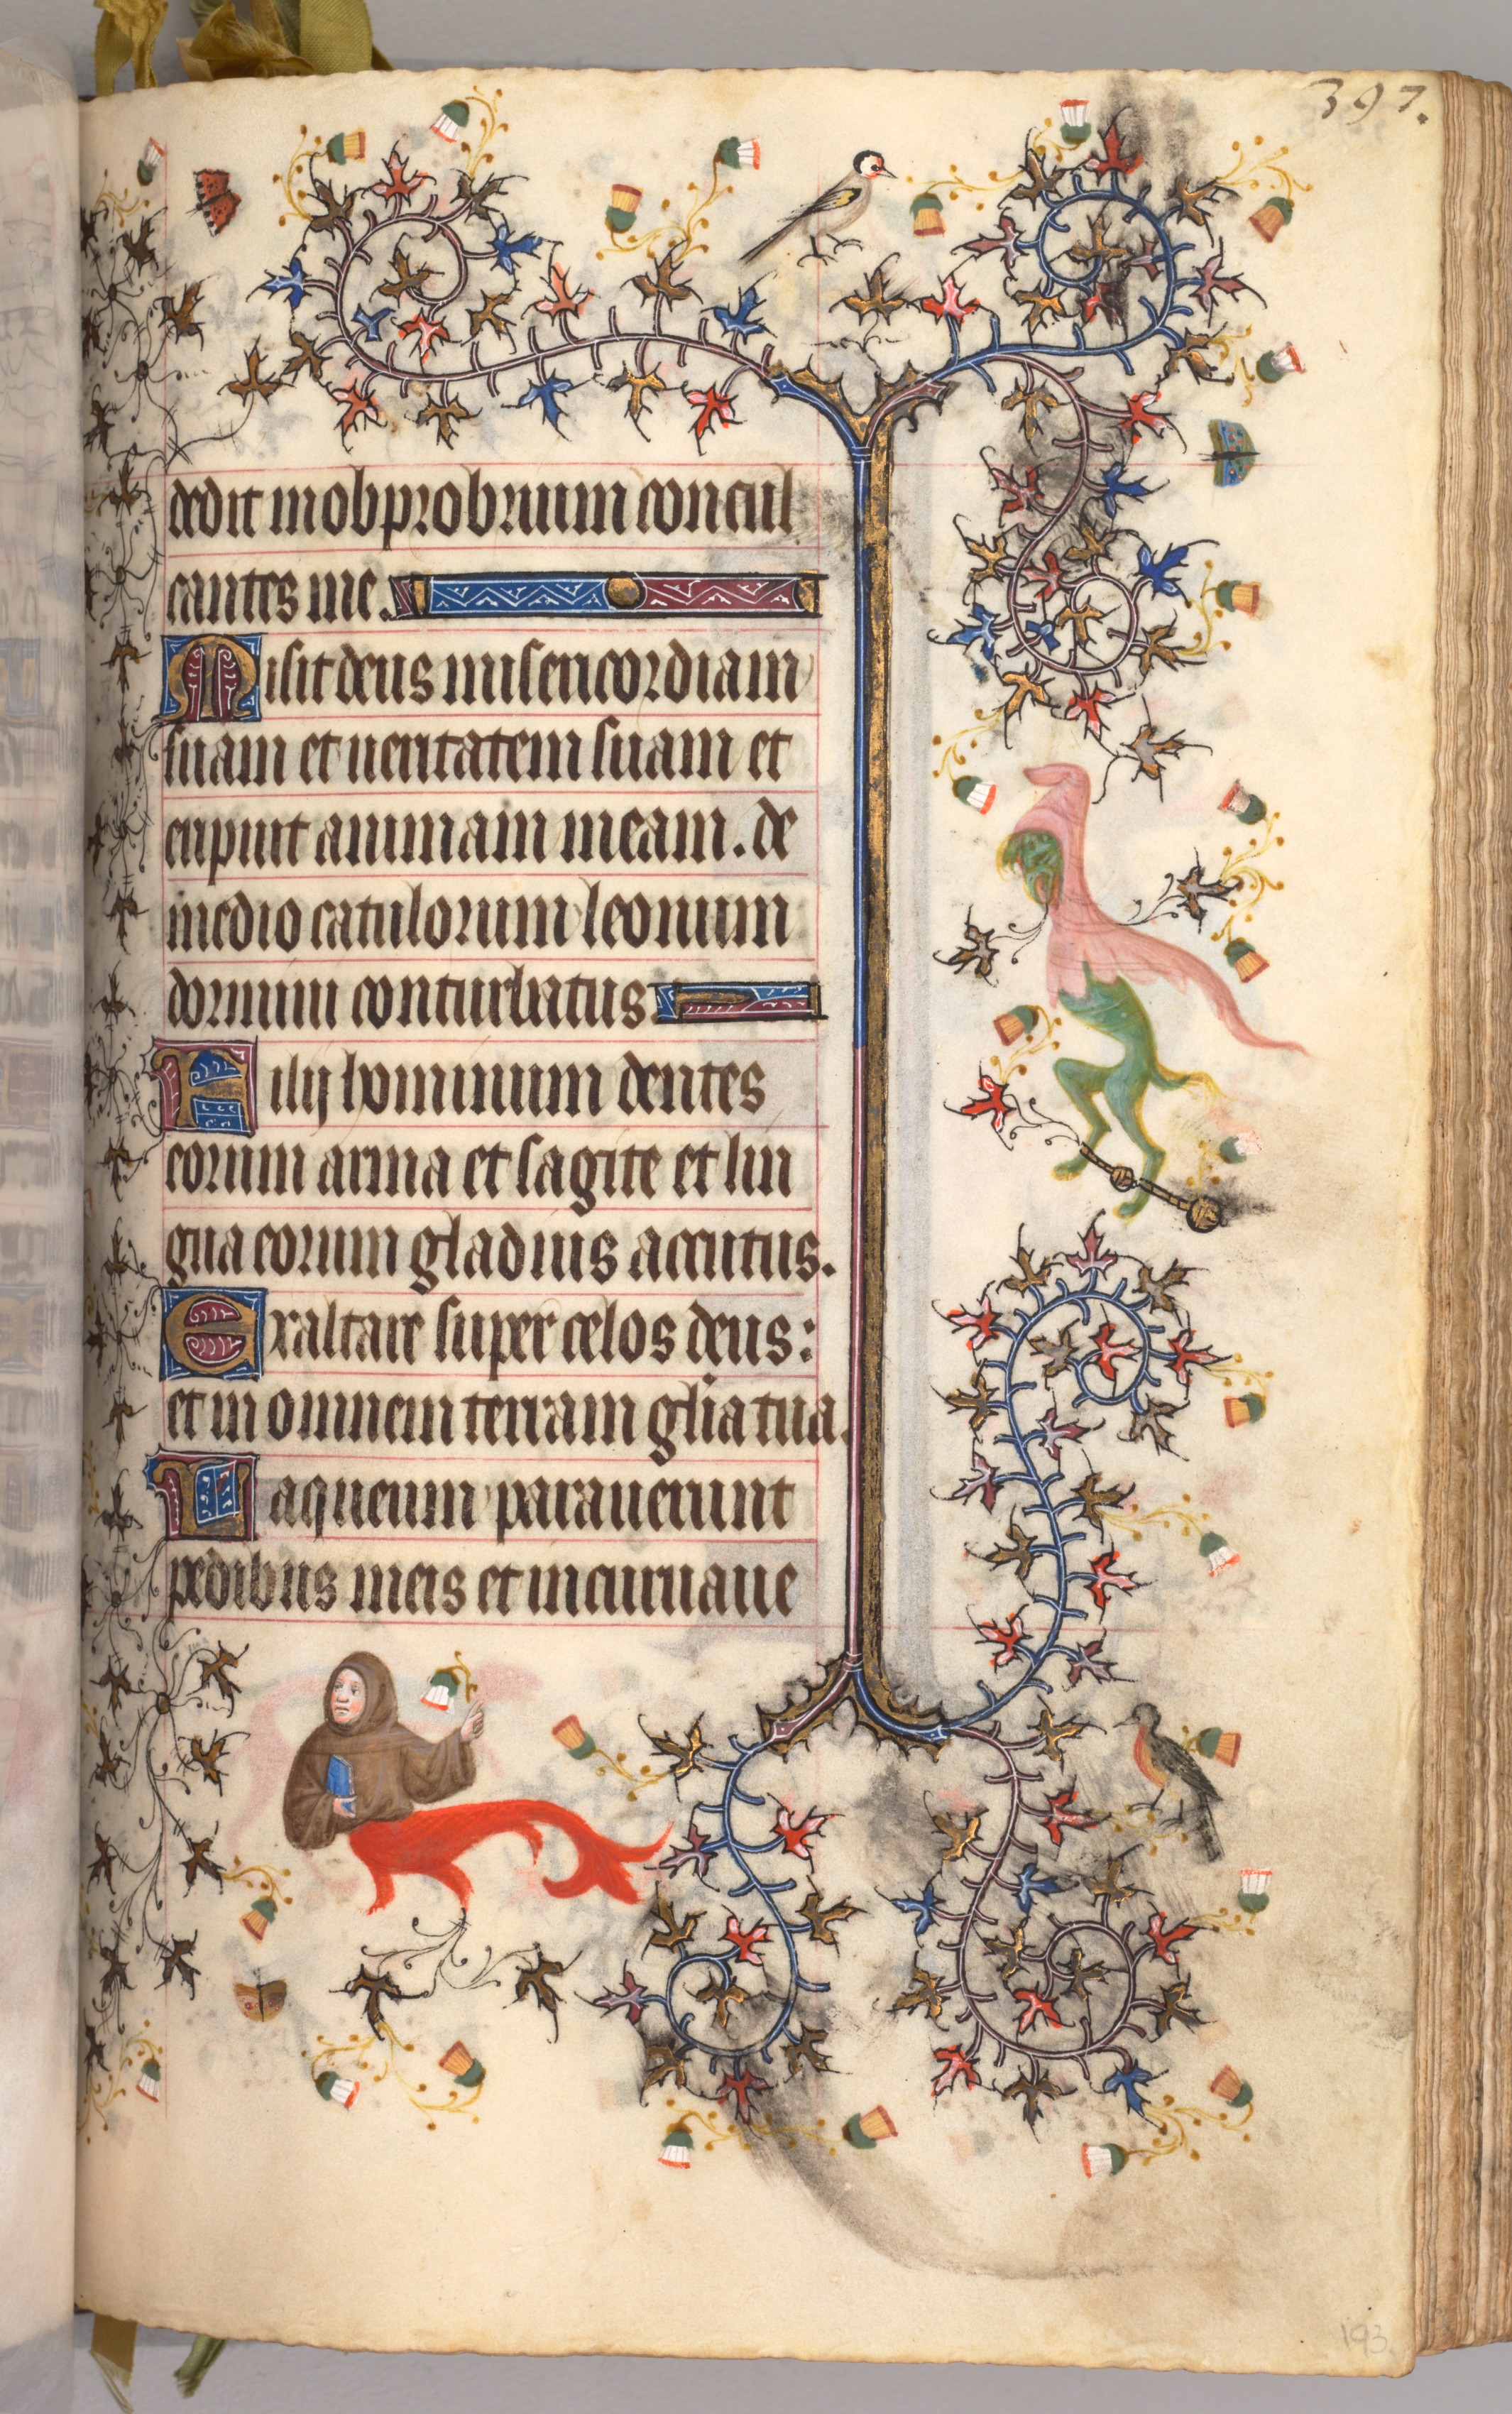 397.
dedit in obprobrium concul
cantes me.
Misit deus misericordiam
suam et ueritatem suam et
eripuit animam meam. de
medio catulorum leonum
dormiui conturbatus
Filij hominum dentes
eorum arma et sagite et lin
gua eorum gladius accutus.
Exaltare super celos deus:
et in omnem terram glia tua.
Laqueum parauerunt
pedibus meis et incuruaue
193.